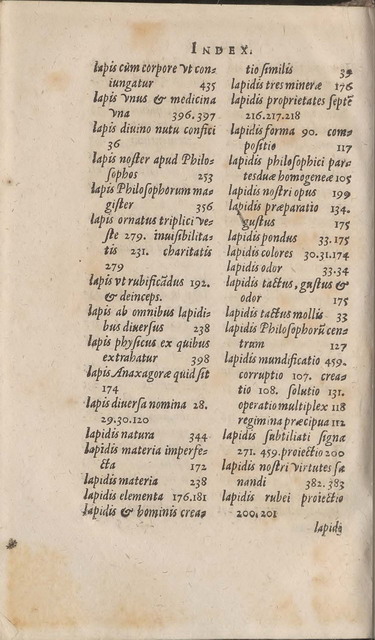 INDEX.
lapis cùm corpore vt con-
iungatur 435
lapis vnus & medicina
vna 396.397
lapis diuino nutu confici
36
lapis noster apud Philo-
sophos 253
lapis Philosophorum ma-
gister 356
lapis ornatus triplici ve-
ste 279. inuisibilita-
tis 231. charitatis
279
lapis vt rubificãdus 192.
& deinceps.
lapis ab omnibus lapidi-
bus diuersus 238
lapis physicus ex quibus
extrahatur 398
lapis Anaxagoræ quid sit
174
lapis diuersa nomina 28.
29.30.120
lapidis natura 344
lapidis materia imperfe-
cta 172
lapidis materia 238
lapidis elementa 176.181
lapidis & hominis crea-
tio similis 39
lapidis tres mineræ 176
lapidis proprietates septẽ
216.217.218
lapidis forma 90. com-
positio 117
lapidis philosophici par-
tes duæ homogeneæ 105
lapidis nostri opus 199
lapidis præparatio 134.
gustus 175
lapidis pondus 33.175
lapidis colores 30.31.174
lapidis odor 33.34
lapidis tactus, gustus &
odor 175
lapidis tactus mollis 33
lapidis Philosophorũ cen-
trum 127
lapidis mundificatio 459.
corruptio 107. crea-
tio 108. solutio 131.
operatio multiplex 118
regimina præcipua 112
lapidis subtiliati signa
271. 459. proiectio 200
lapidis nostri virtutes sa
nandi 382.383
lapidis rubei proiectio
200.201
lapidis